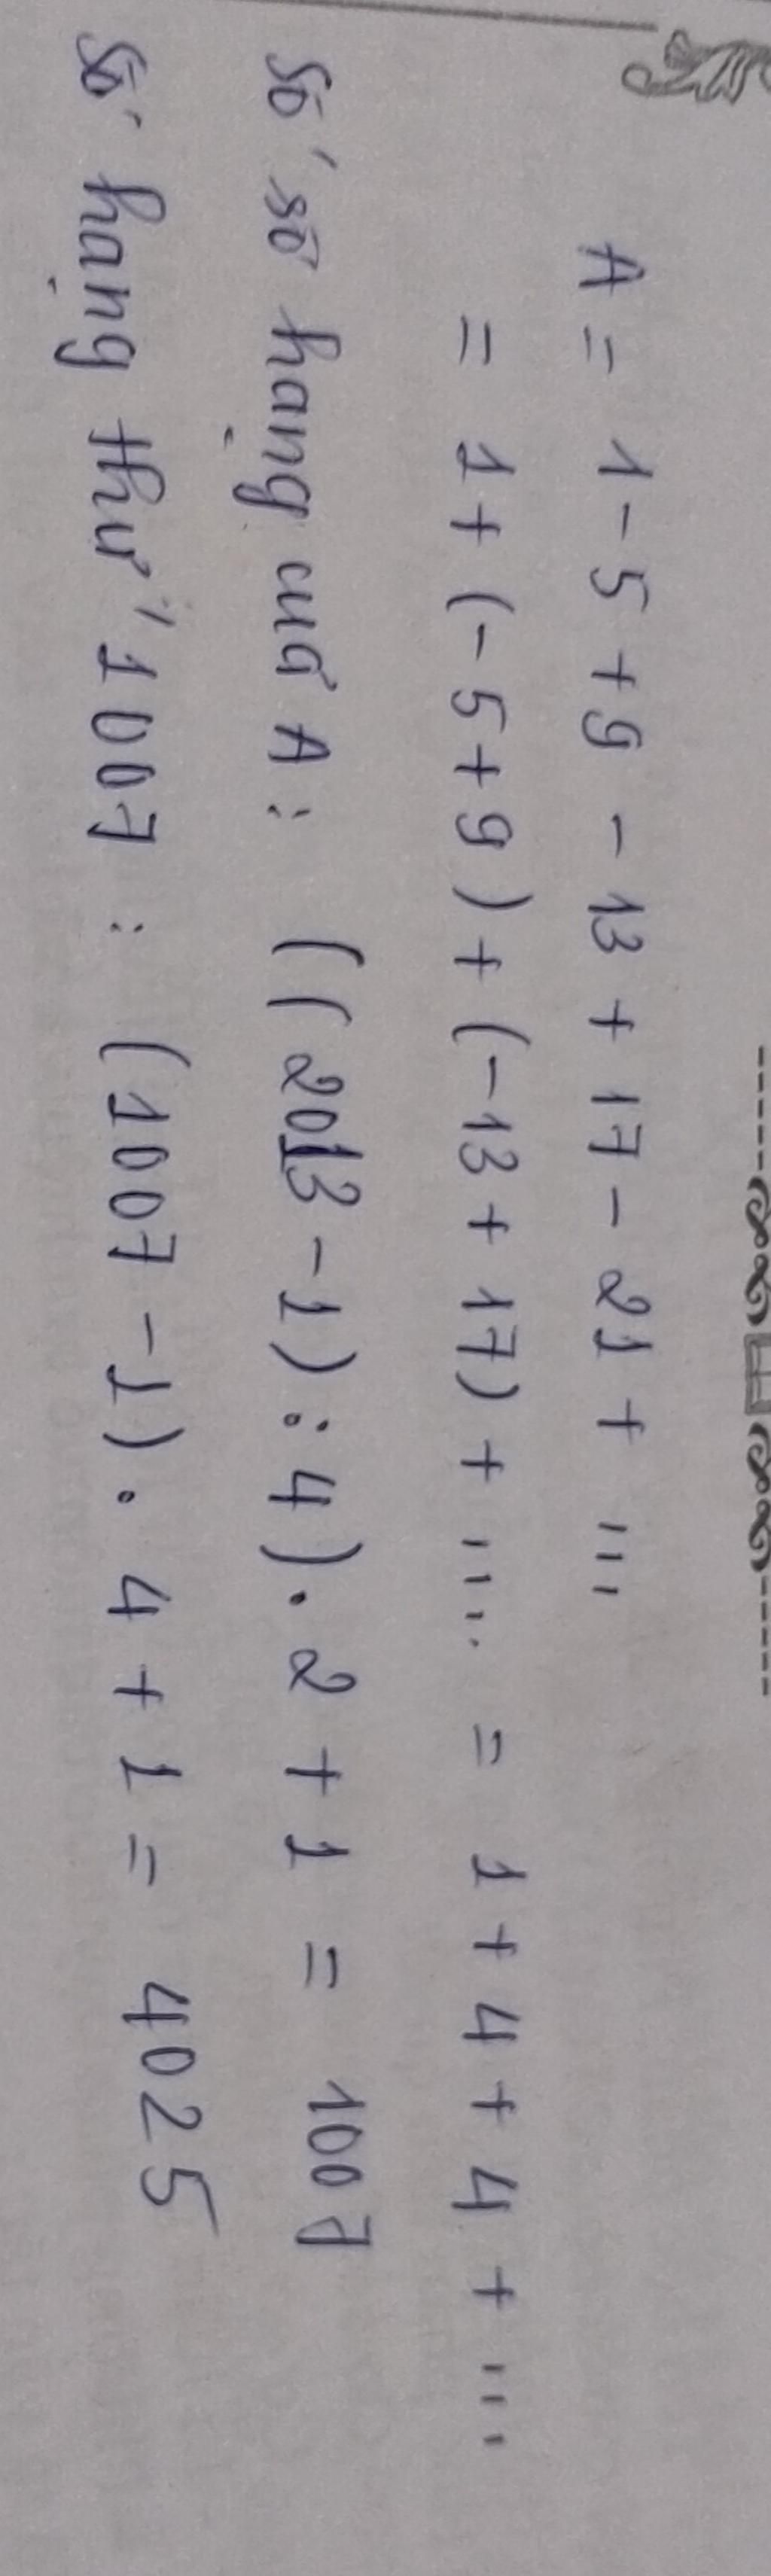 A = 1 - 5 + 9 - 13 + 17 - 21 + ...
= 1 + (- 5 + 9) + (- 13 + 17) + .... = 1 + 4 + 4 + ...
Số số hạng của A : ((2013 - 1) : 4) . 2 + 1 = 1007
Số hạng thứ 1007 : (1007 - 1) . 4 + 1 = 4025